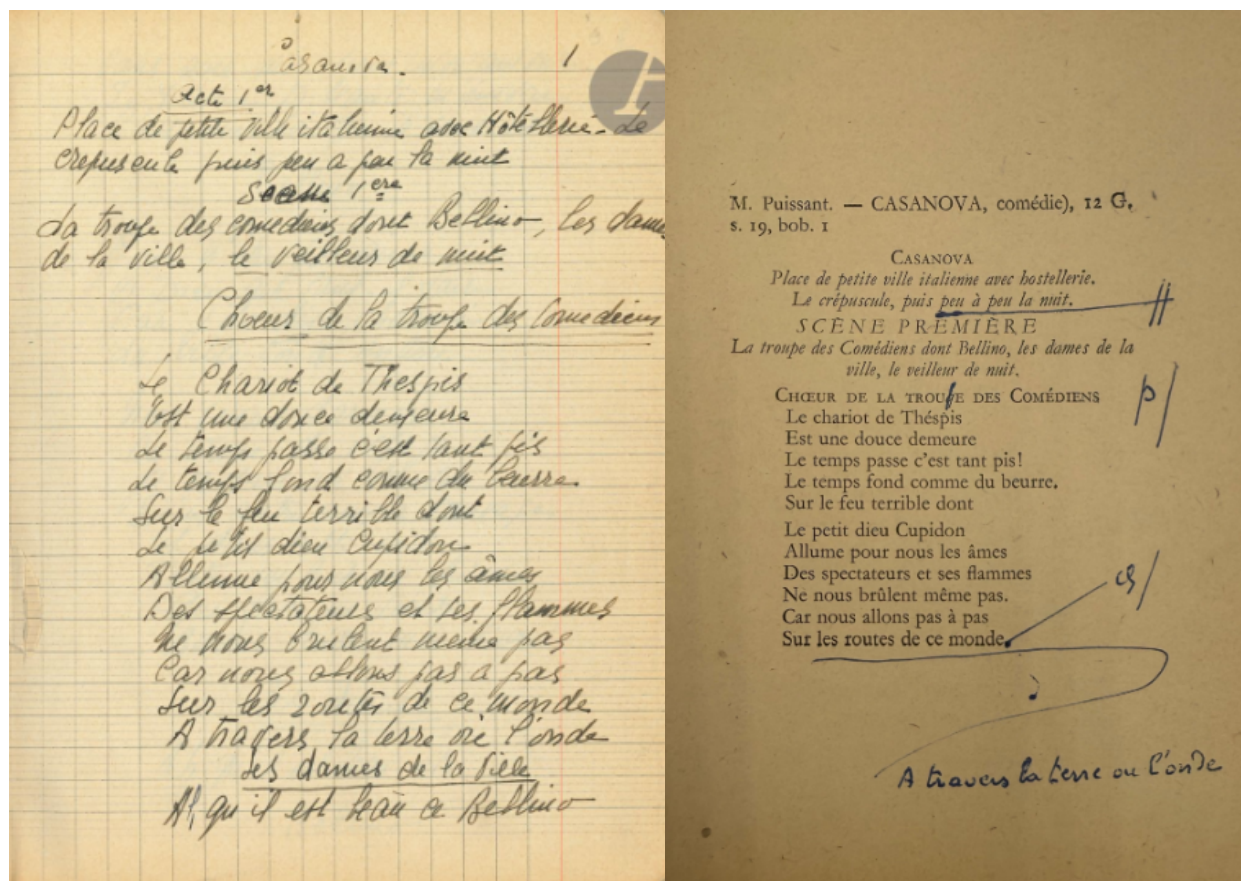 Casanova.
1
Acte 1er
Place de petite ville italienne avec Hôtellerie - Le
crepuscule puis peu a peu la nuit
Scene 1ere
La troupe des comediens dont Bellino, les dames
de la ville, le veilleur de nuit
Choeur de la troupe des Comediens
Le Chariot de Thespis
Est une douce demeure
Le temps passe c'est tant pis
Le temps fond comme du beurre
Sur le feu terrible dont
Le petit dieu Cupidon
Allume pour nous les âmes
Des spectateurs et ses flammes
Ne nous brulent meme pas
Car nous allons pas a pas
Sur les routes de ce monde
A travers la terre où l'onde
Les dames de la ville
Ah qu'il est beau ce Bellino
M. Puissant. — CASANOVA, comédie), 12 G,
s. 19, bob. 1
CASANOVA
Place de petite ville italienne avec hostellerie.
Le crépuscule, puis peu à peu la nuit.
SCÈNE PREMIÈRE
La troupe des Comédiens dont Bellino, les dames de la
ville, le veilleur de nuit.
CHŒUR DE LA TROUPE DES COMÉDIENS
p/
Le chariot de Théspis
Est une douce demeure
Le temps passe c'est tant pis!
Le temps fond comme du beurre.
Sur le feu terrible dont
Le petit dieu Cupidon
Allume pour nous les âmes
Des spectateurs et ses flammes
Ne nous brûlent même pas.
Car nous allons pas à pas
Sur les routes de ce monde.
A travers la terre ou l'onde